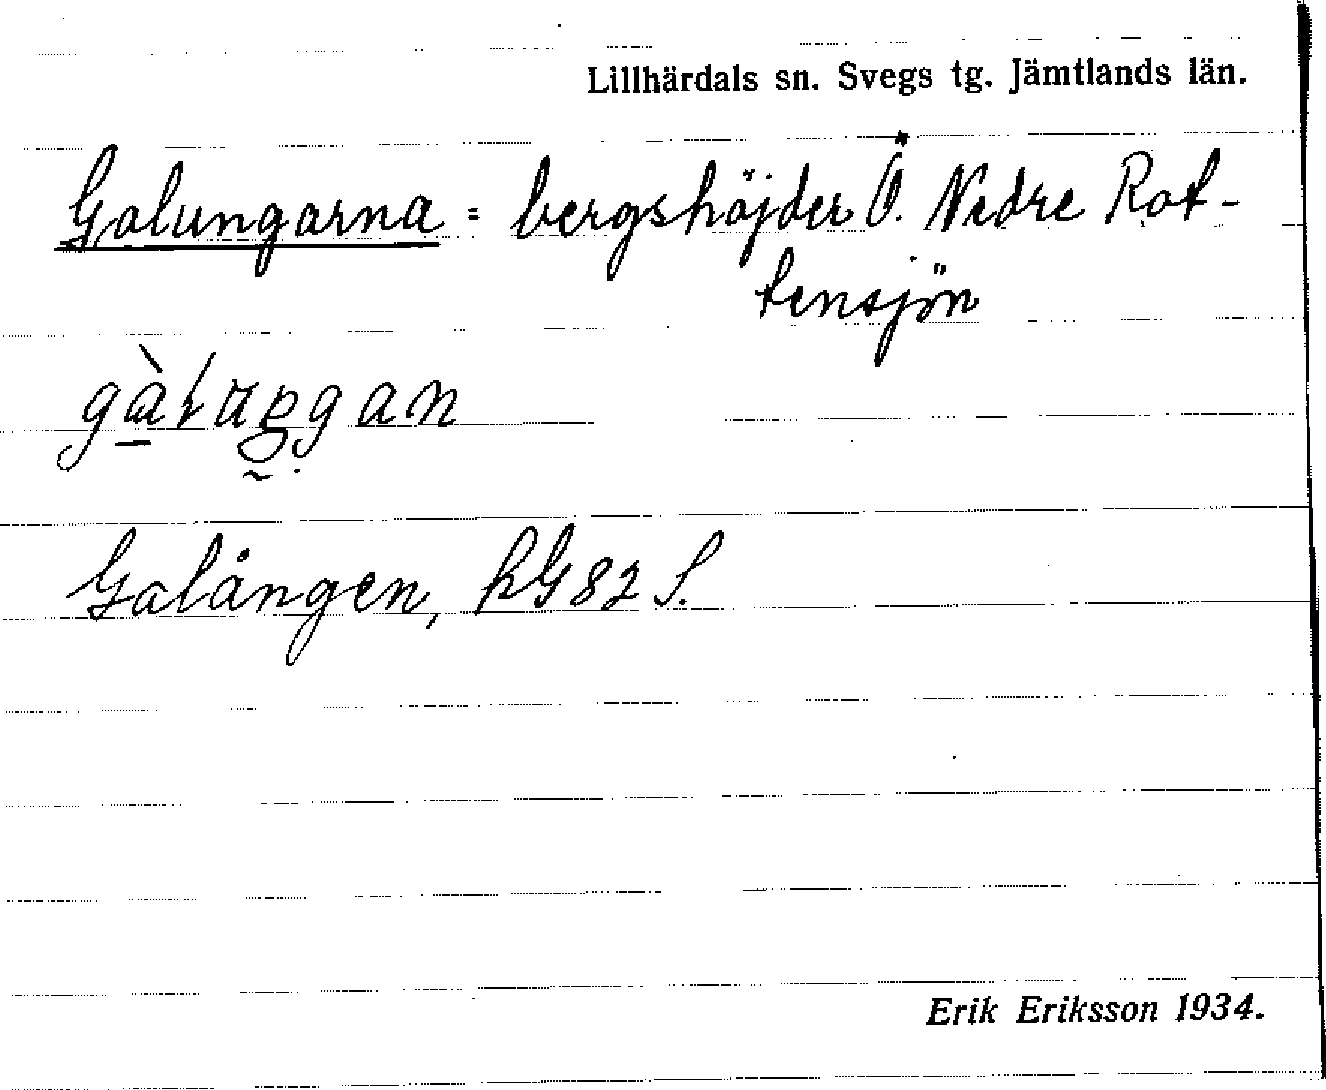 Lillhärdals sn. Svegs tg. Jämtlands län.
Galungarna = bergshöjder Ö. Nedre Rot-
tensjön
Galången, kG 82 S.
Erik Eriksson 1934.